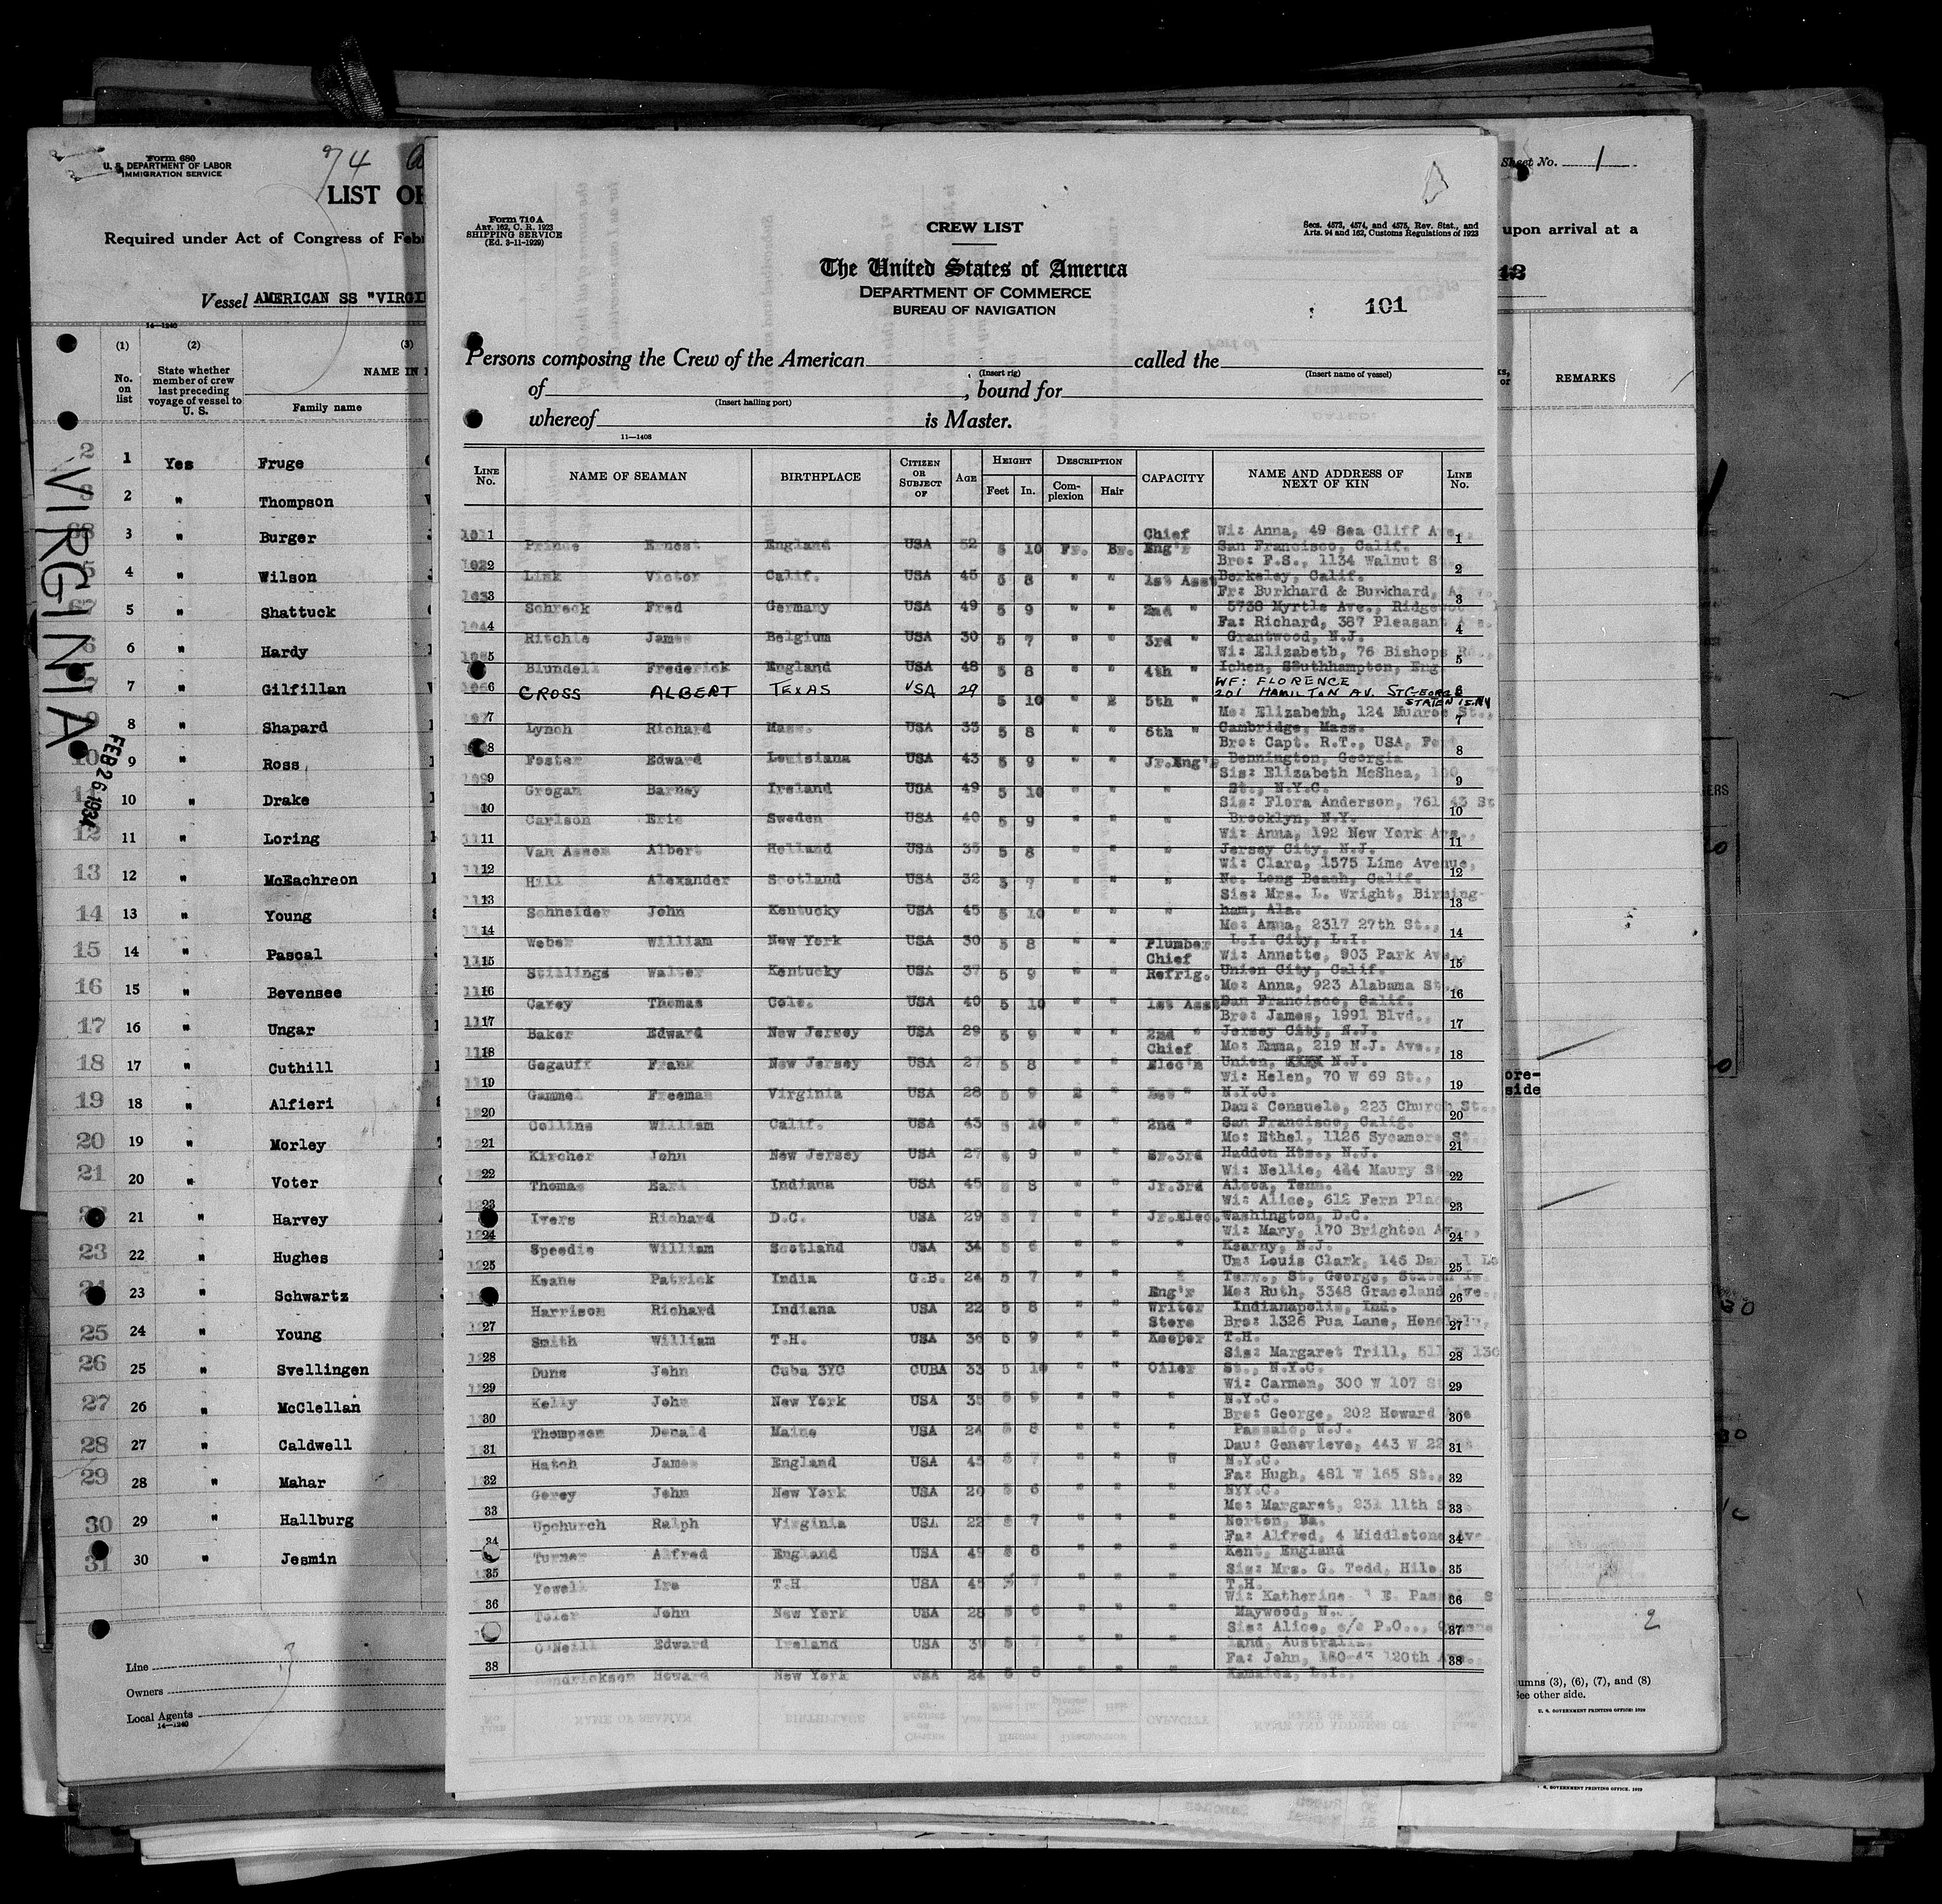 Form 680
U. S. DEPARTMENT OF LABOR
IMMIGRATION SERVICE
74
LIST OF
Required under Act of Congress of Feb
Vessel AMERICAN SS "VIRGI
14—1240
(1) (2) (3)
No. on list
State whether member of crew last preceding voyage of vessel to U. S.
NAME IN
Family name
VIRGINIA
FEB 26 1934
2 1 Yes Fruge
2 " Thompson
68 3 " Burger
5 4 " Wilson
67 5 " Shattuck
6 6 " Hardy
7 7 " Gilfillan
9 8 " Shapard
10 9 " Ross
11 10 " Drake
12 11 " Loring
13 12 " McEachreon
14 13 " Young
15 14 " Pascal
16 15 " Bevensee
17 16 " Ungar
18 17 " Cuthill
19 18 " Alfieri
20 19 " Morley
21 20 " Voter
21 " Harvey
23 22 " Hughes
24 23 " Schwartz
25 24 " Young
26 25 " Svellingen
27 26 " McClellan
28 27 " Caldwell
29 28 " Mahar
30 29 " Hallburg
31 30 " Jesmin
Line
Owners
Local Agents
14—1240
Form 710 A
Art. 162, C. R. 1923
SHIPPING SERVICE
(Ed. 3-11-1929)
CREW LIST
Secs. 4573, 4574, and 4575, Rev. Stat., and
Arts. 94 and 162, Customs Regulations of 1923
The United States of America
DEPARTMENT OF COMMERCE
BUREAU OF NAVIGATION
101
Persons composing the Crew of the American called the
(Insert rig) (Insert name of vessel)
of , bound for
(Insert hailing port)
whereof is Master.
11—1408
LINE No. NAME OF SEAMAN BIRTHPLACE CITIZEN OR SUBJECT OF AGE HEIGHT Feet In. DESCRIPTION Complexion Hair CAPACITY NAME AND ADDRESS OF NEXT OF KIN LINE No.
1 Prince Ernest England USA 52 5 10 Fr. Br. Chief Eng'r Wi: Anna, 49 Sea Cliff Ave., San Francisco, Calif. 1
2 Link Victor Calif. USA 45 5 8 " " 1st Asst Bro: F.S., 1134 Walnut S Berkeley, Calif. 2
3 Schreck Fred Germany USA 49 5 9 " " 2nd " Fr: Burkhard & Burkhard, 5738 Myrtle Ave., 3
4 Ritchie James Belgium USA 30 5 7 " " 3rd " Fa: Richard, 387 Pleasant Ave. Grantwood, N.J. 4
5 Blundell Frederick England USA 48 5 8 " " 4th " Wi: Elizabeth, 76 Bishops Rd., Ichen, SSuthhampton, Eng 5
6 CROSS ALBERT TEXAS USA 29 5 10 " " 5th " WF: FLORENCE 201 HAMILTON AV. ST GEORGE STATEN IS. NY 6
7 Lynch Richard Mass. USA 33 5 8 " " 6th " Mo: Elizabeth, 124 Munroe St., Cambridge, Mass. 7
8 Foster Edward Louisiana USA 43 5 9 " " Jr.Eng'r Bro: Capt. R.T., USA, Fo Bennington, Georgia 8
9 Grogan Barney Ireland USA 49 5 10 " " " Sis: Elizabeth McShea, St., N.Y.C. 9
10 Carlson Eric Sweden USA 40 5 9 " " " Sis: Flora Anderson, 761 43 St Brooklyn, N.Y. 10
11 Van Assem Albert Holland USA 35 5 8 " " " Wi: Anna, 192 New York Ave., Jersey City, N.J. 11
12 Hill Alexander Scotland USA 32 5 7 " " " Wi: Clara, 1575 Lime Avenue, No. Long Beach, Calif. 12
13 Schneider John Kentucky USA 45 5 10 " " " Sis: Mrs. L. Wright, Birming- ham, Ala. 13
14 Weber William New York USA 30 5 8 " " Plumber Mo: Anna, 2317 27th St., L.I. City, L.I. 14
15 Stillings Walter Kentucky USA 37 5 9 " " Chief Refrig. Wi: Annette, 903 Park Ave., Union City, Calif. 15
16 Carey Thomas Colo. USA 40 5 10 " " 1st Asst Mo: Anna, 923 Alabama St., San Francisco, Calif. 16
17 Baker Edward New Jersey USA 29 5 9 " " 2nd " Bro: James, 1991 Blvd., Jersey City, N.J. 17
18 Gegauff Frank New Jersey USA 27 5 8 " " Chief Elec'n Mo: Emma, 219 N.J. Ave., Union, XXXX N.J. 18
19 Gammel Freeman Virginia USA 28 5 9 " " 1st " Wi: Helen, 70 W 69 St., N.Y.C. 19
20 Collins William Calif. USA 43 5 10 " " 2nd " Dau: Consuelo, 223 Church St., San Francisco, Calig. 20
21 Kircher John New Jersey USA 27 9 " " Sr.3rd Mo: Ethel, 1126 Sycamore St. Haddon Hts., N.J. 21
22 Thomas Earl Indiana USA 45 8 " " Jr.3rd Wi: Nellie, 424 Maury S Alcoa, Tenn. 22
23 Ivers Richard D.C. USA 29 5 7 " " Jr.Elec. Wi: Alice, 612 Fern Place Washington, D.C. 23
24 Speedie William Scotland USA 34 5 6 " " " Wi: Mary, 170 Brighton Ave., Kearny, N.J. 24
25 Keane Patrick India G.B. 24 5 7 " " " Un: Louis Clark, 145 Terr., St. George, Staten Is. 25
Harrison Richard Indiana USA 22 5 8 " " Eng'r Writer Mo: Ruth, 3348 Graceland Ave., Indianapolis, Ind. 26
27 Smith William T.H. USA 36 5 9 " " Store Keeper Bro: 1326 Pua Lane, Honolulu, T.H. 27
28 Dune John Cuba 3YC CUBA 33 5 10 " " Oiler Sis: Margaret Trill, 511 W 130 St., N.Y.C. 28
29 Kelly John New York USA 38 5 9 " " " Wi: Carmen, 300 W 107 S N.Y.C. 29
30 Thompson Donald Maine USA 24 5 8 " " " Bro: George, 202 Howard Ave Passaic, N.J. 30
31 Hatch James England USA 45 5 7 " " " Dau: Genevieve, 443 W 22 N.Y.C. 31
32 Gerey John New York USA 20 5 6 " " " Fa: Hugh, 481 W 165 St., NYY.C. 32
33 Upchurch Ralph Virginia USA 22 5 7 " " " Mo: Margaret, 231 11th S Norton, Va. 33
34 Turner Alfred England USA 49 5 8 " " " Fa: Alfred, 4 Middletone Ave Kent, England 34
35 Yowell Ira T.H USA 45 7 " " " Sis: Mrs. G. Todd, Hilo T.H. 35
36 Toler John New York USA 28 5 6 " " " Wi: Katherine E. Maywood, N. 36
O'Neill Edward Ireland USA 39 5 7 " " " Sis: Alice, c/o P.O., Queens land, Australia. 37
38 Hendrickson Howard New York USA 24 5 8 " " " Fa: John, 120th Ave., Jamaica, L.I., 38
Sheet No. 1
upon arrival at a
REMARKS
ore-
side
2
umns (3), (6), (7), and (8)
See other side.
U. S. GOVERNMENT PRINTING OFFICE: 1929
U. S. GOVERNMENT PRINTING OFFICE. 1929